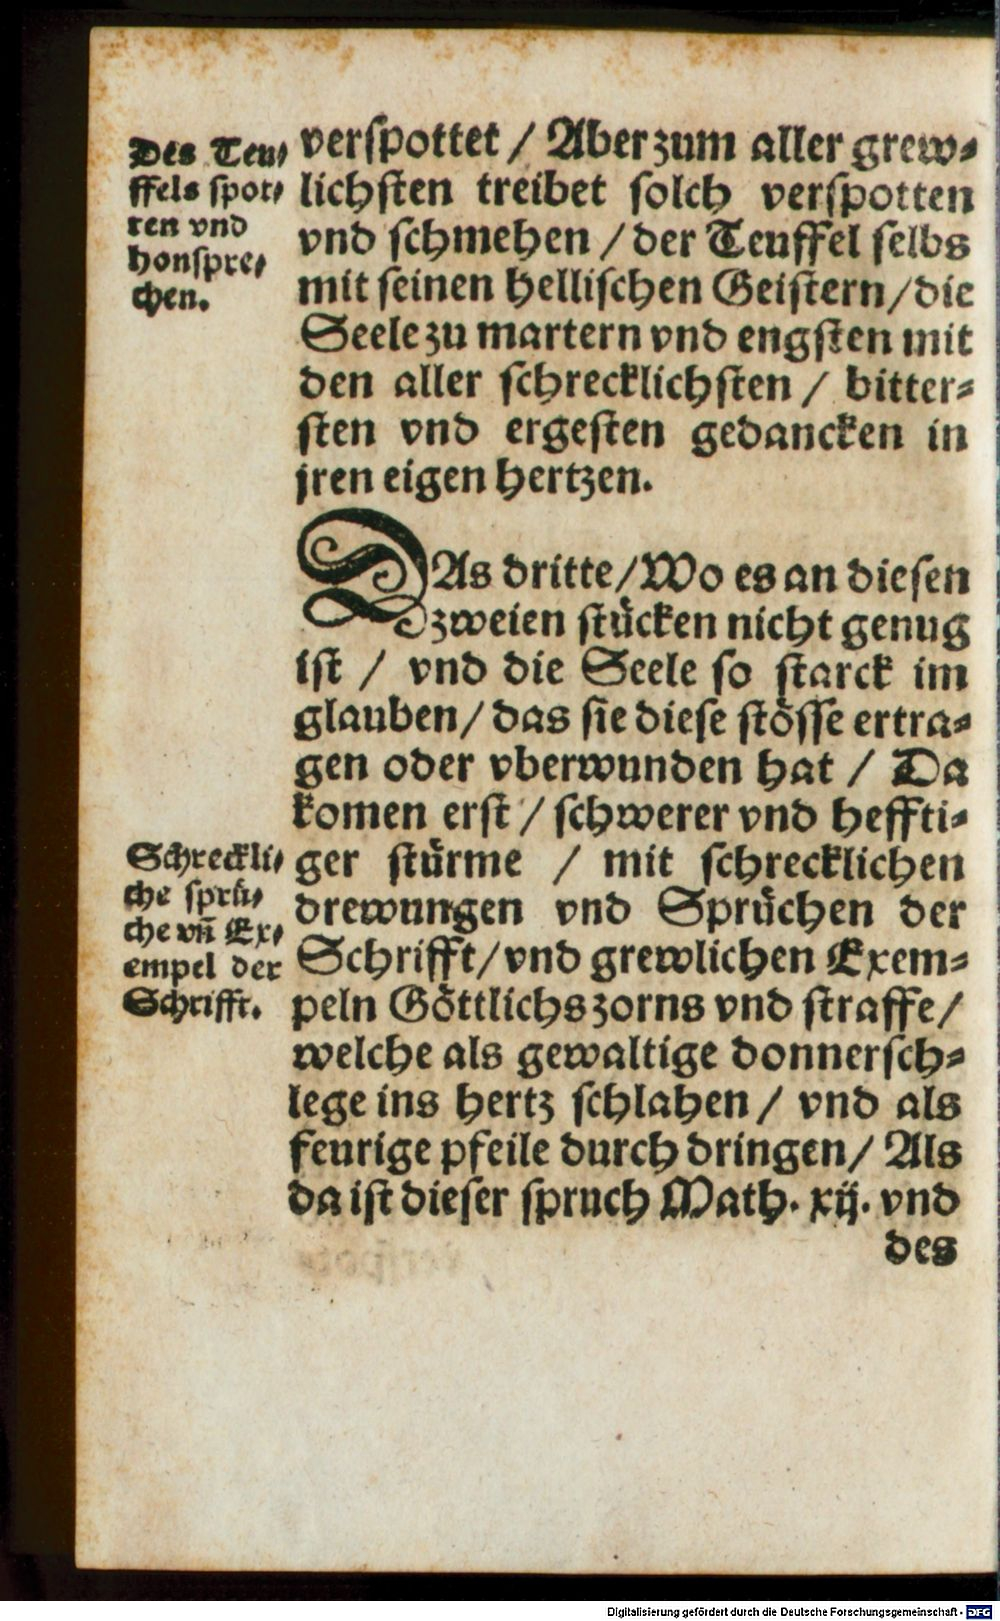 Des Teu⸗
ffels spot⸗
ten vnd
honspre⸗
chen.
verspottet / Aber zum aller grew⸗
lichsten treibet solch verspotten
vnd schmehen / der Teuffel selbs
mit seinen hellischen Geistern / die
Seele zu martern vnd engsten mit
den aller schrecklichsten / bitter⸗
sten vnd ergesten gedancken in
jren eigen hertzen.
DAs dritte / Wo es an diesen
zweien stücken nicht genug
ist / vnd die Seele so starck im
glauben / das sie diese stösse ertra⸗
gen oder vberwunden hat / Da
komen erst / schwerer vnd heffti⸗
Schreckli⸗
che sprü⸗
che vñ Ex⸗
empel der
Schrifft.
ger stürme / mit schrecklichen
drewungen vnd Sprüchen der
Schrifft / vnd grewlichen Exem⸗
peln Göttlichs zorns vnd straffe /
welche als gewaltige donnersch⸗
lege ins hertz schlahen / vnd als
feurige pfeile durch dringen / Als
da ist dieser spruch Math. xij. vnd
des
Digitalisierung gefördert durch die Deutsche Forschungsgemeinschaft - DFG